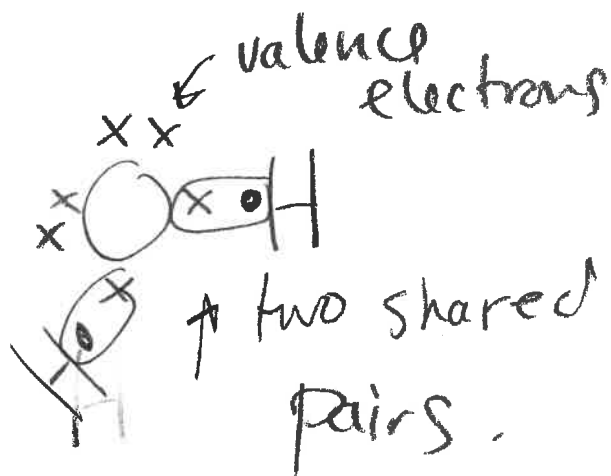 valence
electrons
X X
X O X H
X
X
↑ two shared
H pairs.